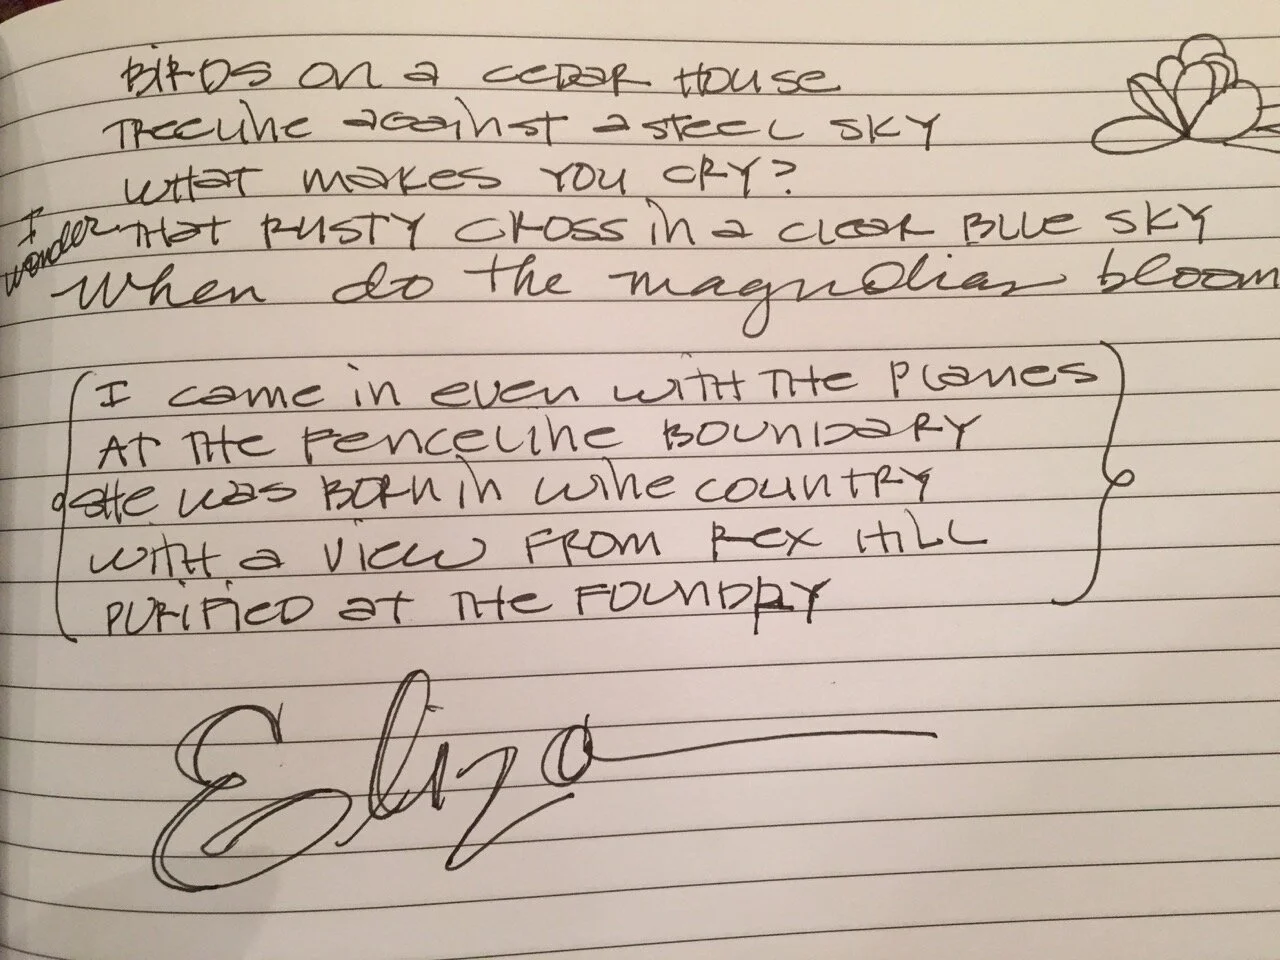 BIRDS on a CEDAR HOUSE
TREELINE against a STEEL SKY
WHAT makes YOU CRY?
I wonder THAT RUSTY CROSS in a CLEAR BLUE SKY
When do the magnolias bloom
I came in even WITH THE PLANES
AT THE FENCELINE BOUNDARY
SHE was BORN in WINE COUNTRY
WITH a VIEW FROM REX HILL
PURIFIED at THE FOUNDRY
Eliza